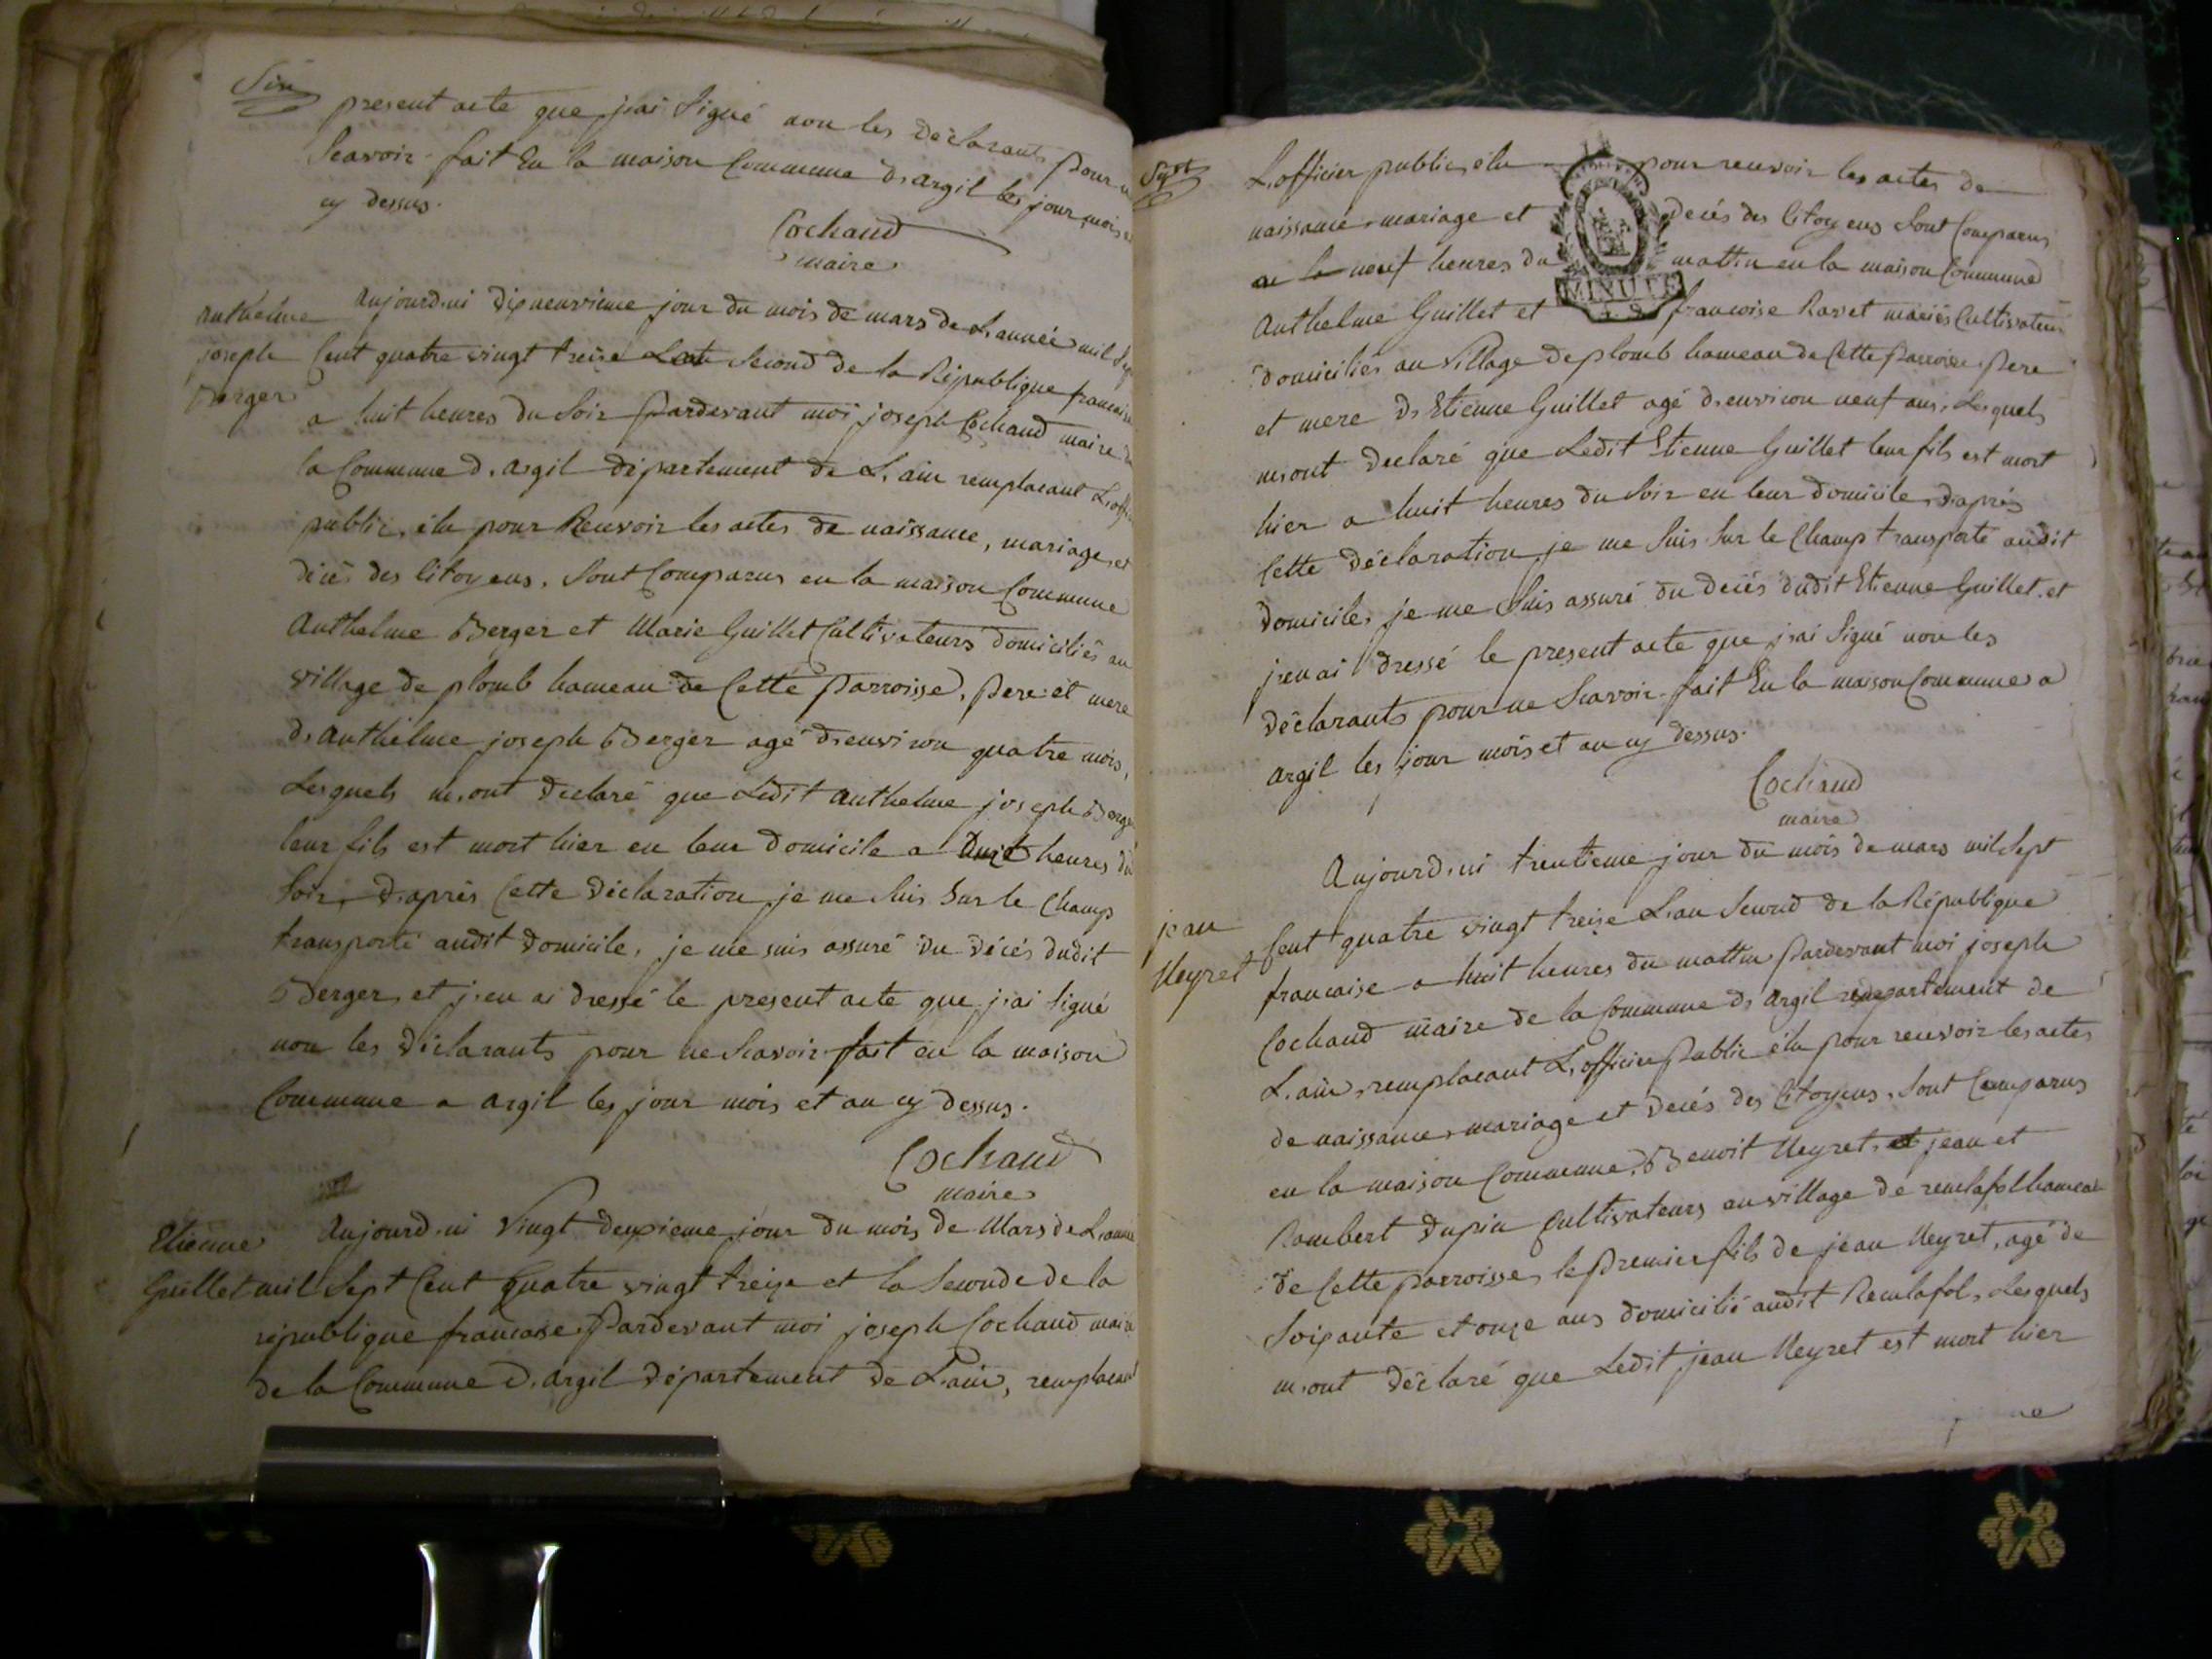 Six
present acte que j,ai Signé non les déclarants pour
Scavoir. fait En la maison Commune d,argil les jour, mois
cy dessus.
Cochaud
maire
anthelme
joseph
Berger
aujourd,ui dixneuvieme jour du mois de mars de L,année mil
Cent quatre vingt treize Second de la République francaise
a huit heures du Soir Pardevant moi joseph Cochaud maire de
la Commune d,argil département de L,ain remplacant L,
public, élu pour Recevoir les actes de naissance, mariage, et
décés des Citoyens, Sont Comparus en la maison Commune
anthelme Berger et Marie Guillet Cultivateurs domiciliés au
village de plomb hameau de Cette Parroisse, Pere et mere
d,anthélme joseph Berger agé d,environ quatre mois,
Lesquels m,ont declaré que Ledit anthelme joseph
leur fils est mort hier en leur domicile a heures du
Soir, d,aprés Cette déclaration je me Suis Sur le Champ
transporté audit domicile, je me suis assuré du décés dudit
Berger, et j,en ai dressé le present acte que j,ai Signé
non les déclarants pour ne Scavoir. fait en la maison
Commune a argil les jour mois et an cy dessus.
Cochaud
maire
Etienne
Guillet
Aujourd,ui Vingt deuxieme jour du mois de Mars de L,année
mil Sept Cent quatre vingt treize et la Seconde de la
république francaise, Pardevant moi joseph Cochaud maire
de la Commune d,argil département de L,ain, remplacant
Sept
L,officier public, élu pour recevoir les actes de
naissance, mariage et decés des Citoyens Sont Comparus
neuf heures du mattin en la maison Commune
MINUTE
Anthelme Guillet et francoise Ravet mariés Cultivateurs
domiciliés au Village de plomb hameau de Cette Parroisse. Pere
et mere d,Etienne Guillet agé d,environ neuf ans, Lesquels
m,ont declaré que Ledit Etienne Guillet leur fils est mort
hier a huit heures du Soir en leur domicile, d,aprés
Cette déclaration je me Suis Sur le Champ transporté audit
domicile, je me Suis assuré du decés dudit Etienne Guillet. et
j,en ai dressé le present acte que j,ai Signé non les
déclarants pour ne Scavoir. fait En la maison Commune a
argil les jour mois et an cy dessus.
Cochaud
maire
jean
Meyret
Aujourd,ui trentieme jour du mois de mars mil Sept
Cent quatre vingt treize L,an Second de la République
francaise a huit heures du mattin Pardevant moi joseph
Cochaud maire de la Commune d,argil département de
L,ain, remplacant L,officier Public élu pour recevoir les actes
de naissance, mariage et decés des Citoyens, Sont Comparus
en la maison Commune, Benoit Meyret, jean et
Rambert Dupin Cultivateurs au village de hameau
de Cette parroisse, le Premier fils de jean Meyret, agé de
Soixante et onze ans domicilié audit Lesquels
m,ont déclaré que Ledit jean Meyret est mort hier